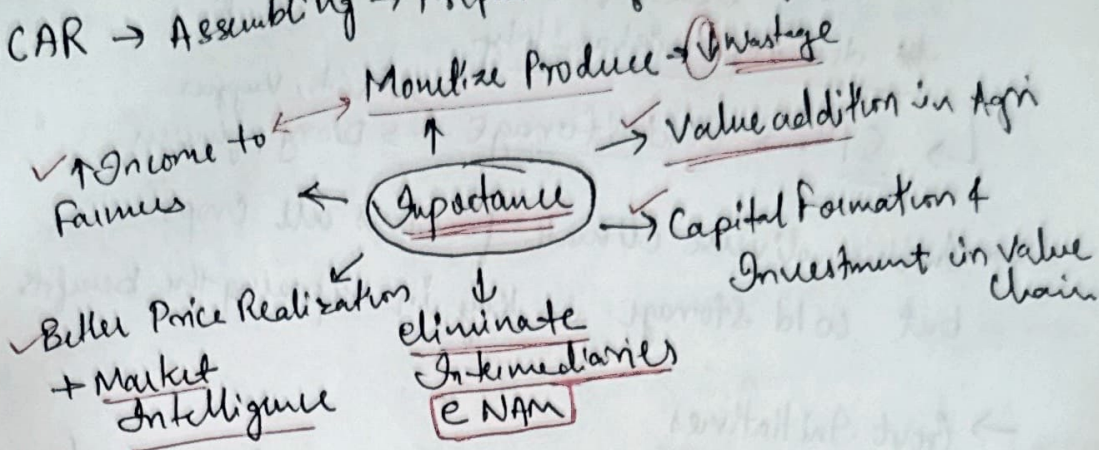 CAR → Assembling →
Monetize Produce → ↓ Wastage
✓ ↑ Income to
Farmers
✓ Value addition in Agri
Importance
✓ Capital Formation &
Investment in Value
Chain
✓ Better Price Realization
+ Market
Intelligence
eliminate
Intermediaries
e NAM